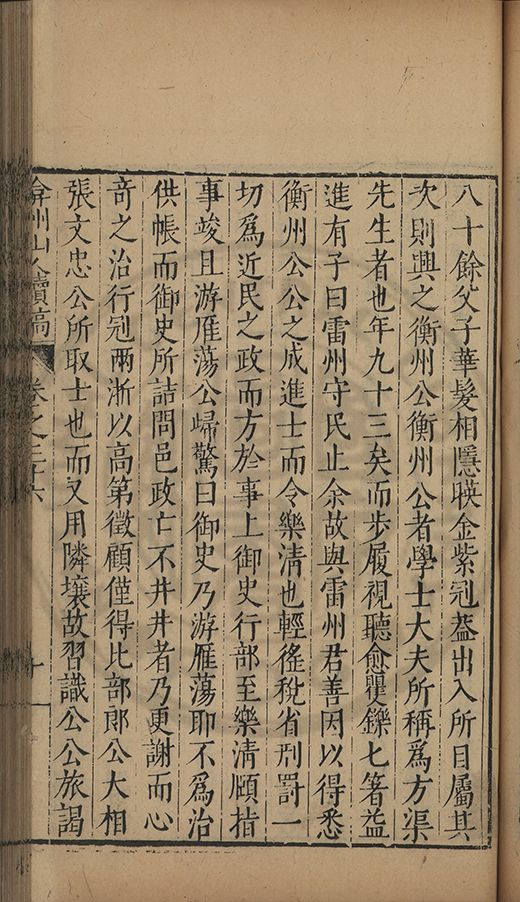 八十餘父子華髮相隱暎金紫冠葢出入所目屬其
次則興之衡州公衡州公者學士大夫所稱爲方渠
先生者也年九十三矣而步履視聽愈矍鑠七箸益
進有子曰雷州守民止余故與雷州君善因以得悉
衡州公公之成進士而令樂清也輕徭稅省刑罰一
切爲近民之政而方於事上御史行部至樂清頤指
事竣且游雁蕩公歸驚曰御史乃游雁蕩耶不爲治
供帳而御史所詰問邑政亡不井井者乃更謝而心
竒之治行冠兩浙以高第徵顧僅得比部郎公大相
張文忠公所取士也而又用隣壤故習識公公旅謁
弇州山人續稿 卷之三十六 十